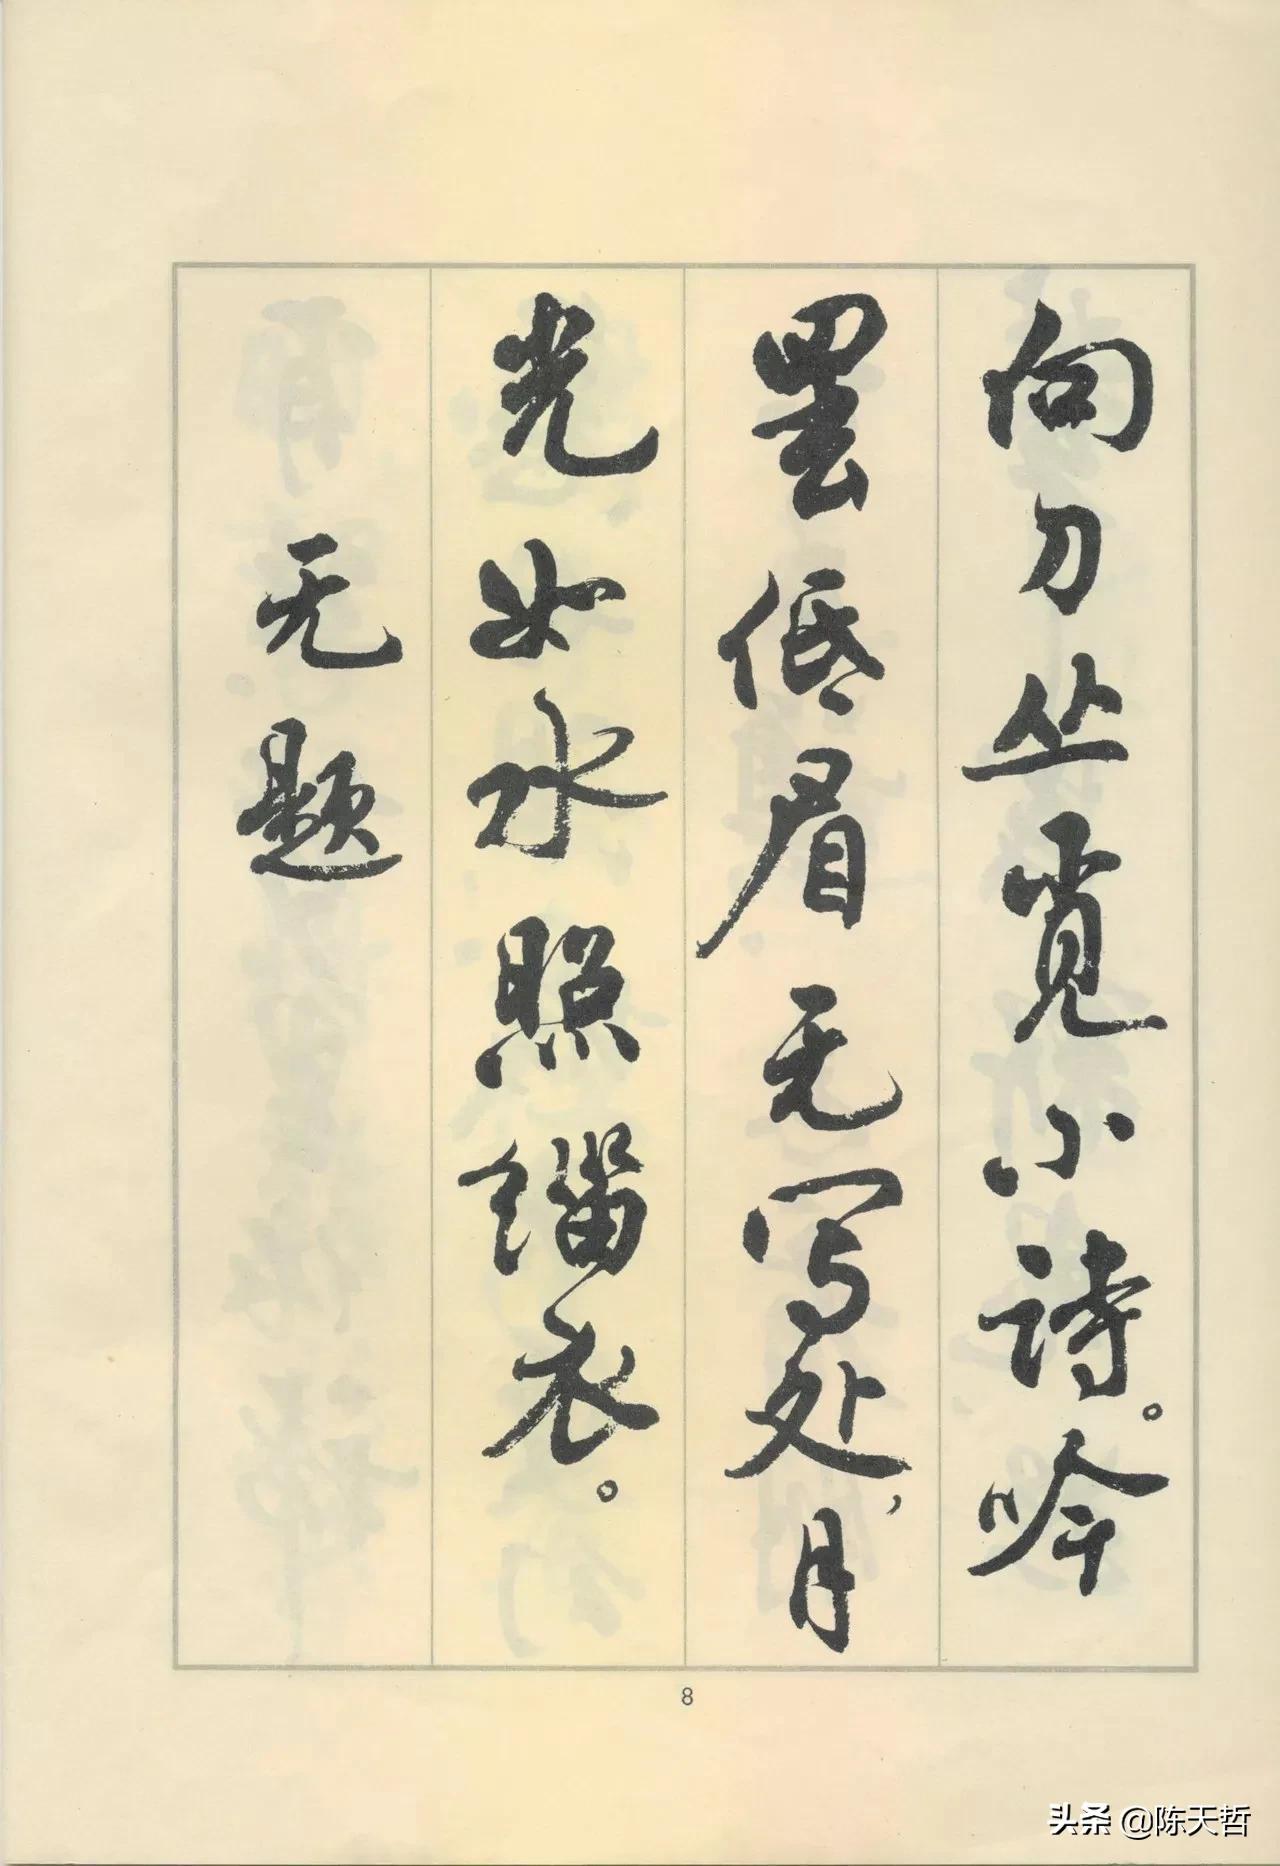 向刀丛觅小诗。吟
罢低眉无写处，月
光如水照缁衣。
无题
8
头条 @陈天哲